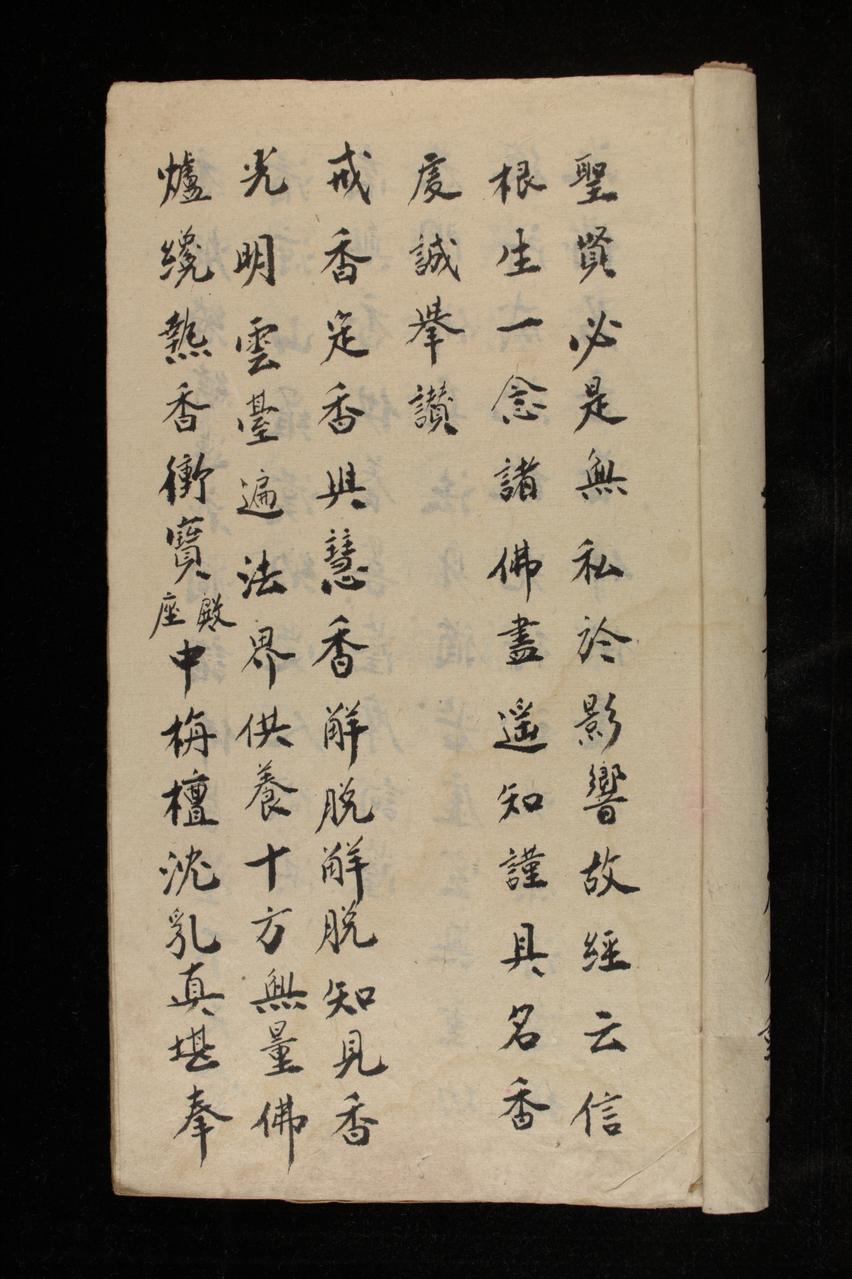 聖賢必是無私於影響故經云信
根生一念諸佛盡遥知謹具名香
虔誠舉讃
戒香定香與慧香解脱解脱知見香
光明雲臺遍法界供養十方無量佛
爐纔熱香衝寳殿座中栴檀沈乳真堪奉